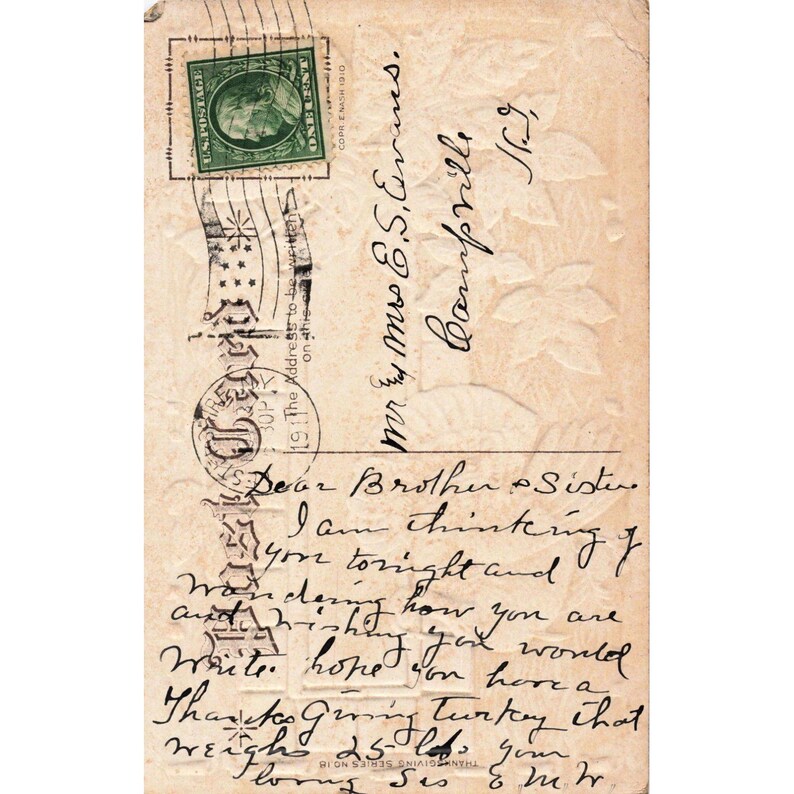 U.S. POSTAGE
ONE CENT
COPR. E. NASH 1910
Post Card
The Address to be written
on this
30 P
1911
Mr & Mrs E. S. Evans.
Campville
N.Y,
Dear Brother & Sister
I am thinking of
you tonight and
wondering how you are
and wishing you would
write. hope you have a
Thanks Giving turkey that
weighs 25 lbs your
loving Sis E.M.W.
THANKSGIVING SERIES NO. 18